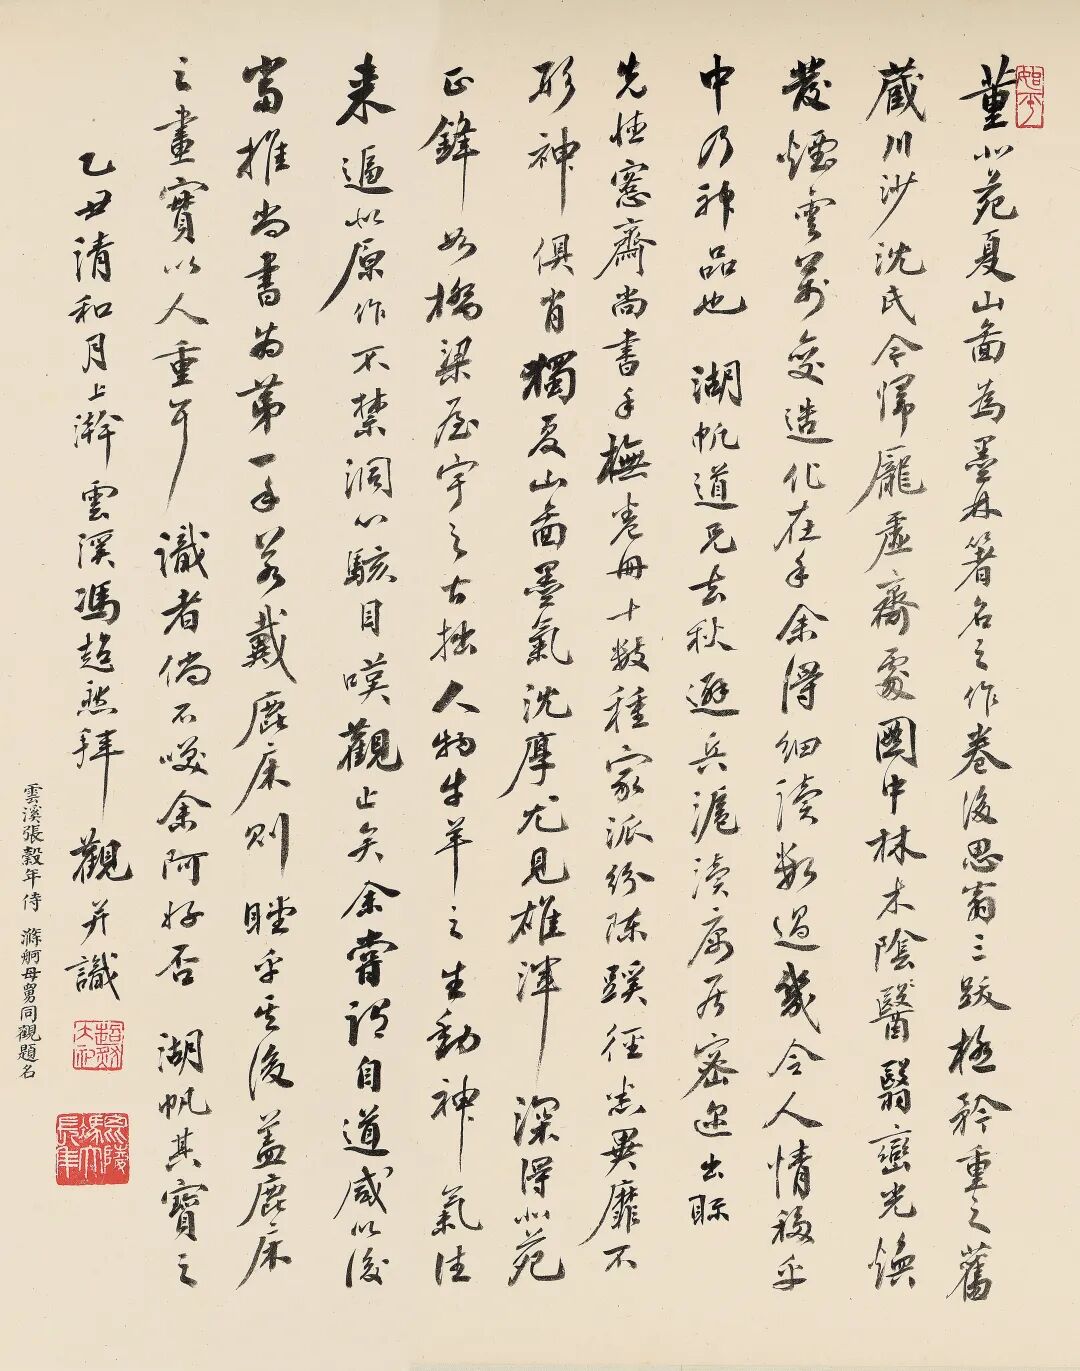 董北苑夏山圖為墨林著名之作卷後思翁三跋極矜重之舊
藏川沙沈氏今帰龐虛齋處圖中林木陰翳巒光煥
發煙雲萬變造化在手余得細讀數過幾令人情移乎
中乃神品也 湖帆道兄去秋避兵滬瀆寓居密邇出眎
先恉窓齋尚書手橅卷冊十數種家派紛陳蹊徑悉異靡不
形神俱肖獨夏山圖墨氣沈厚尤見雄渾 深得北苑
正鋒如橋梁屋宇之古拙人物牛羊之生動神氣往
来逼似原作不禁洞心駭目嘆觀止矣余嘗謂自道咸以後
當推尚書為第一手若戴鹿床則瞠乎其後蓋鹿床
之畫實以人重耳 識者倘不唉余阿好否 湖帆其寶之
乙丑清和月上澣 雲溪馮超然拜觀并識
雲溪張穀年侍 滌舸母舅同觀題名